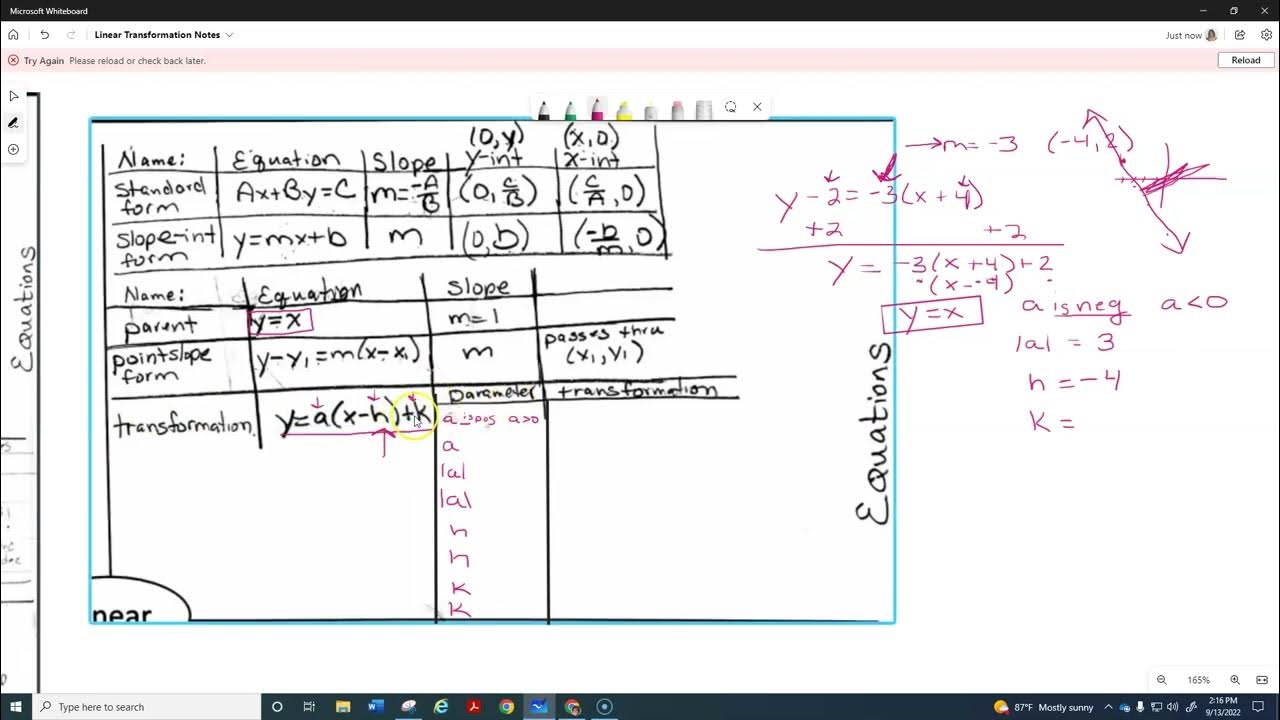 Microsoft Whiteboard
Linear Transformation Notes
Just now
Try Again Please reload or check back later.
Reload
(0,y) (x,0)
Name: Equation Slope y-int x-int
Standard form Ax+By=C m=-A/B (0, C/B) (C/A, 0)
Slope-int form y=mx+b m (0,b) (-b/m, 0)
Name: Equation Slope
parent y=x m=1
point slope form y-y₁=m(x-x₁) m passes thru (x₁,y₁)
parameter transformation
transformation y=a(x-h)+k a is pos a>0
a
|a|
|a|
h
h
k
k
near
Equations
Equations
→m=-3 (-4,2)
y-2=-3(x+4)
+2 +2
y=-3(x+4)+2
(x--4)
y=x
a is neg a<0
|a| = 3
h=-4
K=
165%
Type here to search
87°F Mostly sunny
2:16 PM
9/13/2022